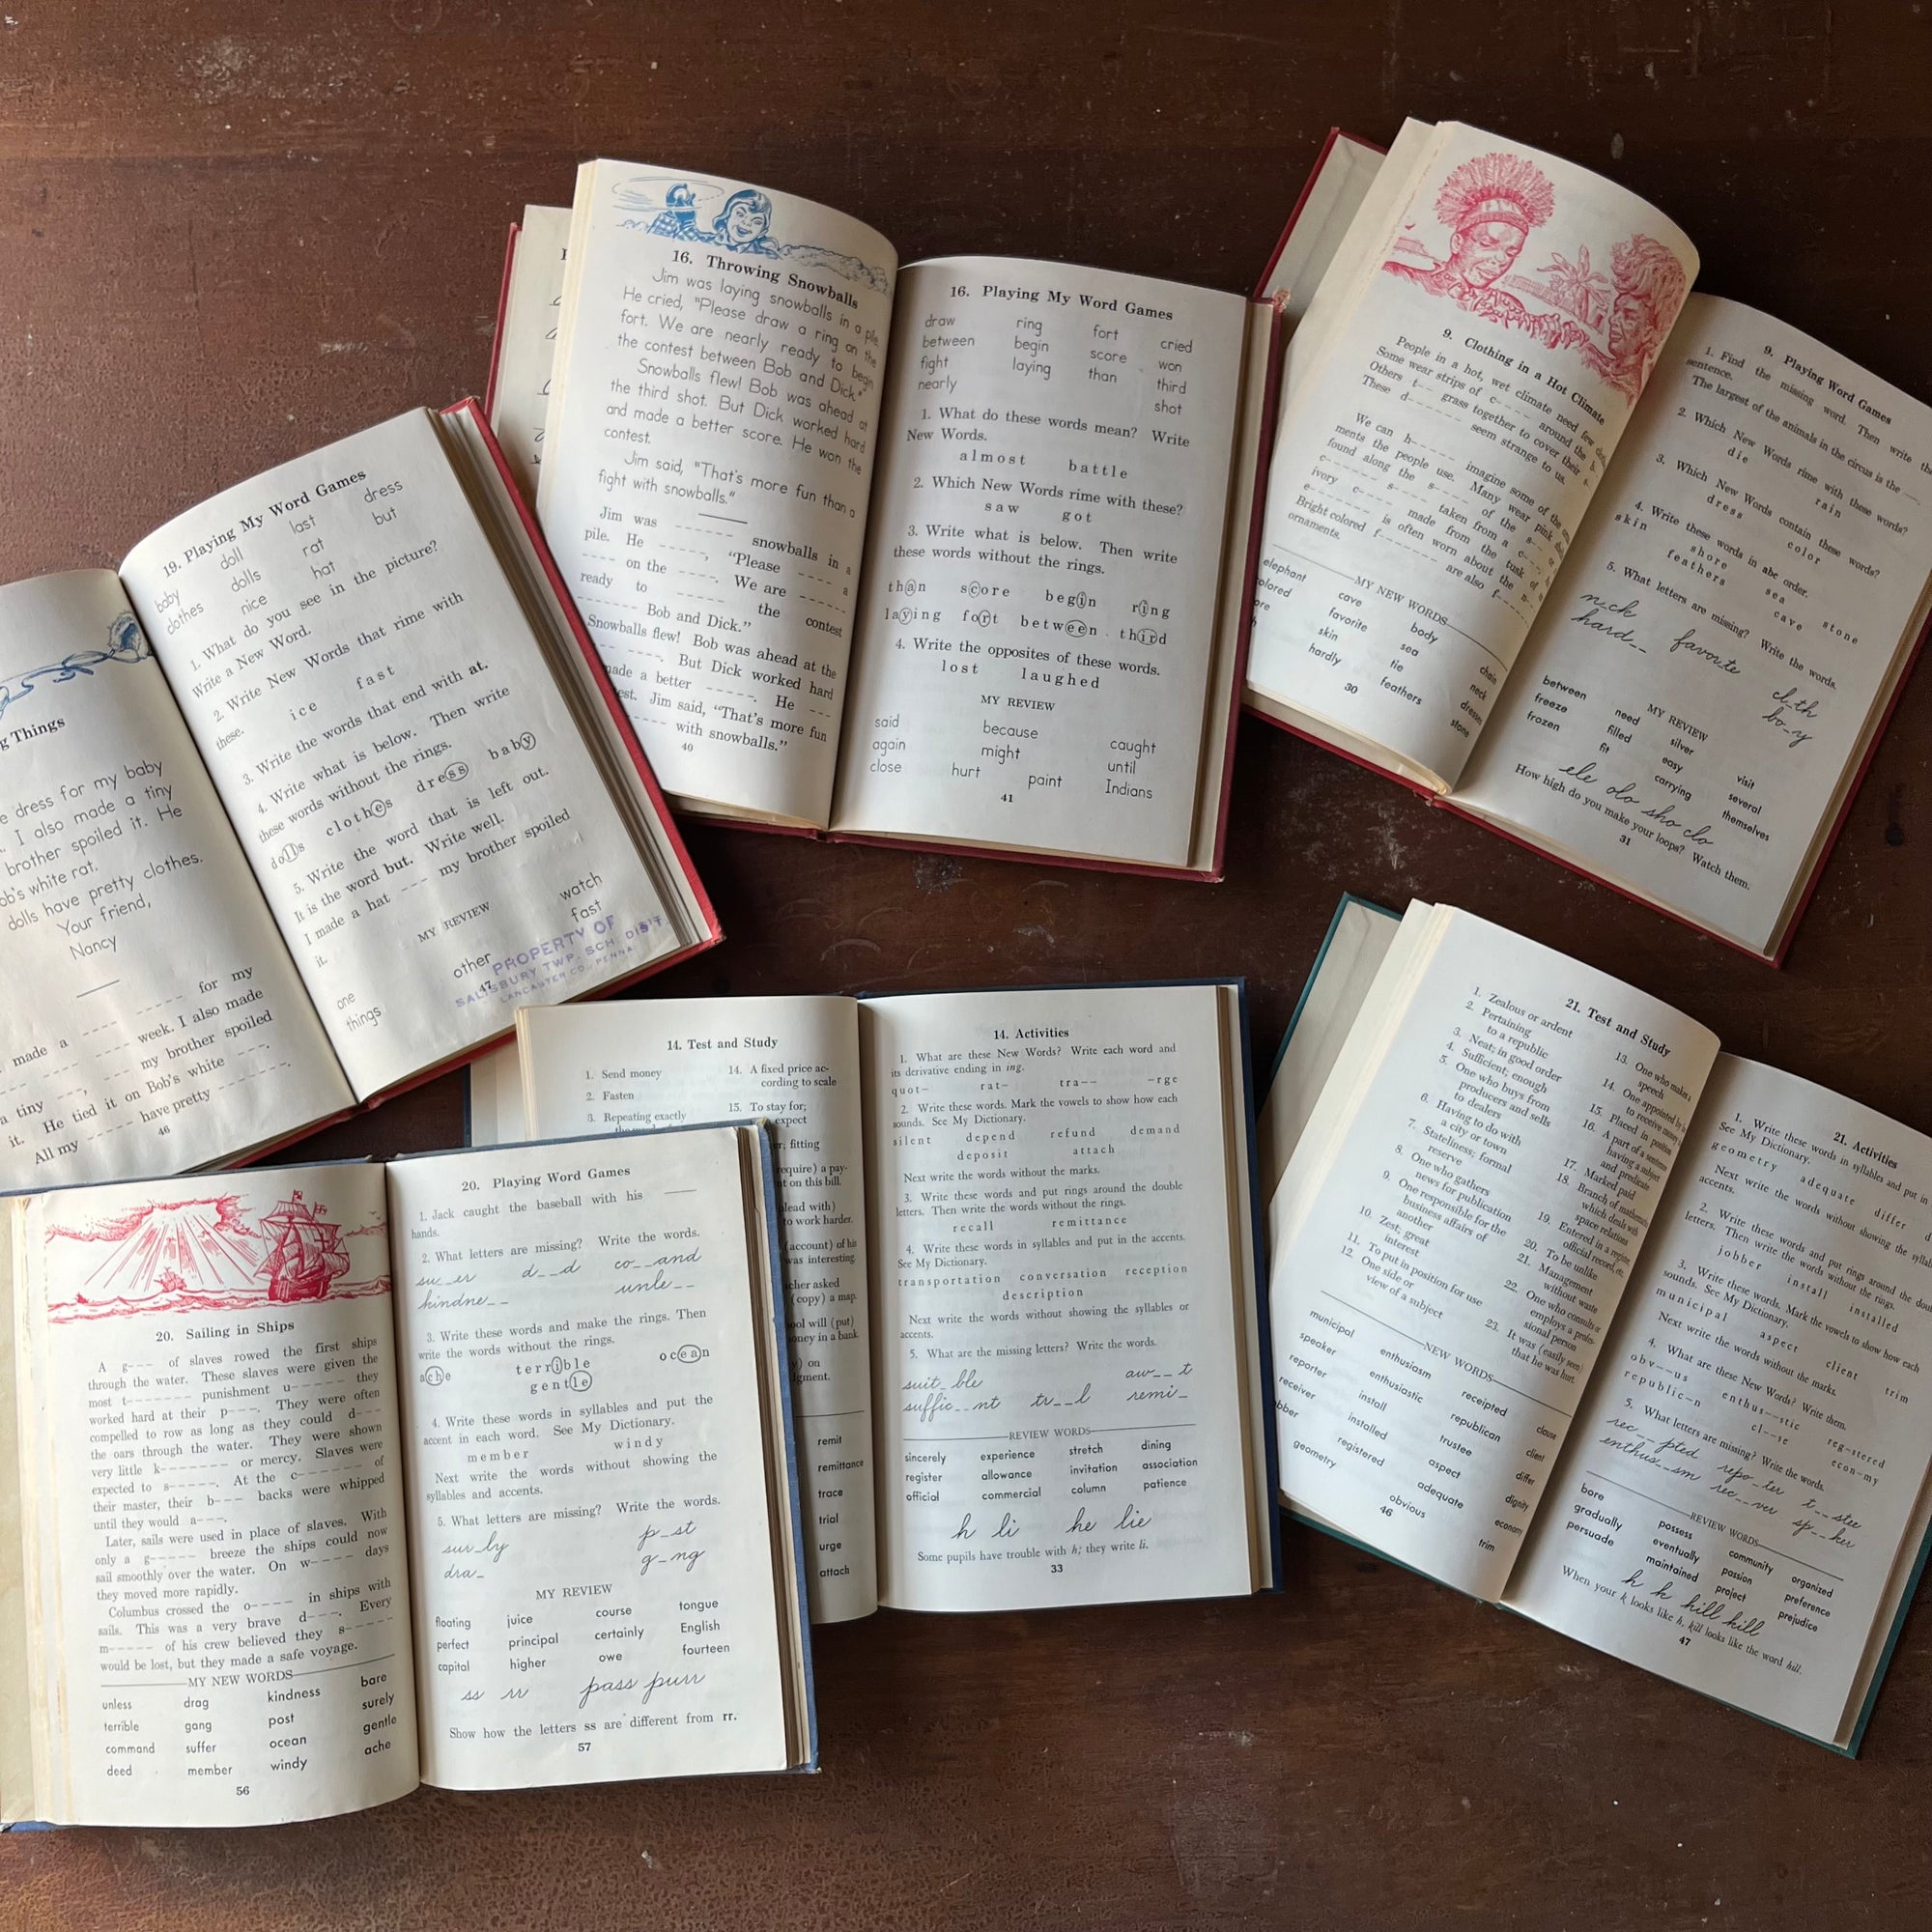 g Things
e dress for my baby
. I also made a tiny
brother spoiled it. He
ob's white rat.
dolls have pretty clothes.
Your friend,
Nancy
made a ---- ----- for my
---- ---- week. I also made
a tiny ---, --- my brother spoiled
it. He tied it on Bob's white ---.
All my ----- have pretty -------.
46
19. Playing My Word Games
baby doll last dress
clothes dolls rat but
nice hat
1. What do you see in the picture?
Write a New Word.
2. Write New Words that rime with
these.
ice fast
3. Write the words that end with at.
4. Write what is below. Then write
these words without the rings.
dolls clothes dress baby
5. Write the word that is left out.
It is the word but. Write well.
I made a hat --- my brother spoiled
it.
MY REVIEW
one other watch
things fast
47
PROPERTY OF
SALISBURY TWP. SCH. DIST.
LANCASTER CO., PENNA.
16. Throwing Snowballs
Jim was laying snowballs in a pile.
He cried, "Please draw a ring on the
fort. We are nearly ready to begin
the contest between Bob and Dick."
Snowballs flew! Bob was ahead at
the third shot. But Dick worked hard
and made a better score. He won the
contest.
Jim said, "That's more fun than a
fight with snowballs."
Jim was ------ snowballs in a
pile. He -----, "Please ---- a
---- on the ----. We are ------
ready to ----- the contest
------- Bob and Dick."
Snowballs flew! Bob was ahead at the
----- ----. But Dick worked hard
made a better -----. He ---
est. Jim said, "That's more fun
----- with snowballs."
40
16. Playing My Word Games
draw ring fort cried
between begin score won
fight laying than third
nearly shot
1. What do these words mean? Write
New Words.
almost battle
2. Which New Words rime with these?
saw got
3. Write what is below. Then write
these words without the rings.
than score begin ring
laying fort between third
4. Write the opposites of these words.
lost laughed
MY REVIEW
said because caught
again might until
close hurt paint Indians
41
9. Clothing in a Hot Climate
People in a hot, wet climate need few
Some wear strips of c----- around the
Others t-- grass together to cover their
These d------- seem strange to us.
We can h----- imagine some of the
ments the people use. Many wear pink
found along the s---- of the s--.
c---- s---- taken from a c---
ivory c---- made from the tusk of
e------- is often worn about the n---.
Bright colored f------- are also
ornaments.
MY NEW WORDS
elephant cave body chain
colored favorite sea neck
ore skin tie dresses
hardly feathers stone
30
9. Playing Word Games
1. Find the missing word. Then write the
sentence.
The largest of the animals in the circus is the
2. Which New Words rime with these?
die rain
3. Which New Words contain these words?
dress color
4. Write these words in abc order.
skin shore sea stone
feathers cave
5. What letters are missing? Write the words.
neck favorite cl-th
hard-- bo-y
MY REVIEW
between need silver visit
freeze filled easy several
frozen fit carrying themselves
ele olo sho clo
How high do you make your loops? Watch them.
31
20. Sailing in Ships
A g--- of slaves rowed the first ships
through the water. These slaves were given the
most t------- punishment u----- they
worked hard at their p---. They were often
compelled to row as long as they could d---
the oars through the water. They were shown
very little k------- or mercy. Slaves were
expected to s-----. At the c------ of
their master, their b--- backs were whipped
until they would a---.
Later, sails were used in place of slaves. With
only a g----- breeze the ships could now
sail smoothly over the water. On w---- days
they moved more rapidly.
Columbus crossed the o---- in ships with
sails. This was a very brave d---. Every
m----- of his crew believed they s-----
would be lost, but they made a safe voyage.
MY NEW WORDS
unless drag kindness bare
terrible gang post surely
command suffer ocean gentle
deed member windy ache
56
20. Playing Word Games
1. Jack caught the baseball with his
hands.
2. What letters are missing? Write the words.
su__er d__d co__and
kindne__ unle__
3. Write these words and make the rings. Then
write the words without the rings.
ache terrible ocean
gentle
4. Write these words in syllables and put the
accent in each word. See My Dictionary.
member windy
Next write the words without showing the
syllables and accents.
5. What letters are missing? Write the words.
sur_ly p_st
dra_ g_ng
MY REVIEW
floating juice course tongue
perfect principal certainly English
capital higher owe fourteen
ss rr pass purr
Show how the letters ss are different from rr.
57
14. Test and Study
1. Send money
2. Fasten
3. Repeating exactly
14. A fixed price ac-
cording to scale
15. To stay for;
expect
er; fitting
equire) a pay-
nt on this bill.
lead with)
to work harder.
(account) of his
was interesting.
cher asked
(copy) a map.
ool will (put)
oney in a bank.
y) on
dgment.
remit
remittance
trace
trial
urge
attach
14. Activities
1. What are these New Words? Write each word and
its derivative ending in ing.
quot- rat- tra-- -rge
2. Write these words. Mark the vowels to show how each
sounds. See My Dictionary.
silent depend refund demand
deposit attach
Next write the words without the marks.
3. Write these words and put rings around the double
letters. Then write the words without the rings.
recall remittance
4. Write these words in syllables and put in the accents.
See My Dictionary.
transportation conversation reception
description
Next write the words without showing the syllables or
accents.
5. What are the missing letters? Write the words.
suit_ble aw__t
suffic__nt tr__l remi_
REVIEW WORDS
sincerely experience stretch dining
register allowance invitation association
official commercial column patience
h li he lie
Some pupils have trouble with h; they write li.
33
21. Test and Study
1. Zealous or ardent
2. Pertaining
to a republic
3. Neat; in good order
4. Sufficient; enough
5. One who buys from
producers and sells
to dealers
6. Having to do with
a city or town
7. Stateliness; formal
reserve
8. One who gathers
news for publication
9. One responsible for the
business affairs of
another
10. Zest, great
interest
11. To put in position for use
12. One side or
view of a subject
13. One who makes a
speech
14. One appointed by
to receive money
15. Placed in position
16. A part of a sentence
having a subject
and predicate
17. Marked paid
18. Branch of mathematics
which deals with
space relations
19. Entered in a register,
official record, etc.
20. To be unlike
21. Management
without waste
22. One who consults or
employs a profes-
sional person
23. It was (easily seen)
that he was hurt.
NEW WORDS
municipal enthusiasm receipted clause
speaker enthusiastic republican client
reporter install trustee differ
receiver installed aspect dignity
bber registered adequate economy
geometry obvious trim
46
21. Activities
1. Write these words in syllables and put in
See My Dictionary.
geometry adequate differ
Next write the words without showing the
accents.
2. Write these words and put rings around the
letters. Then write the words without the rings.
jobber install installed
3. Write these words. Mark the vowels to show how each
sounds. See My Dictionary.
municipal aspect client trim
Next write the words without the marks.
4. What are these New Words? Write them.
obv--us enthus--stic reg-stered
republic-n cl--se econ-my
5. What letters are missing? Write the words.
rec__pted repo_ter t__stee
enthus__sm rec__ver sp__ker
REVIEW WORDS
bore possess community organized
gradually eventually passion preference
persuade maintained project prejudice
h k hill kill
When your k looks like h, kill looks like the word hill.
47